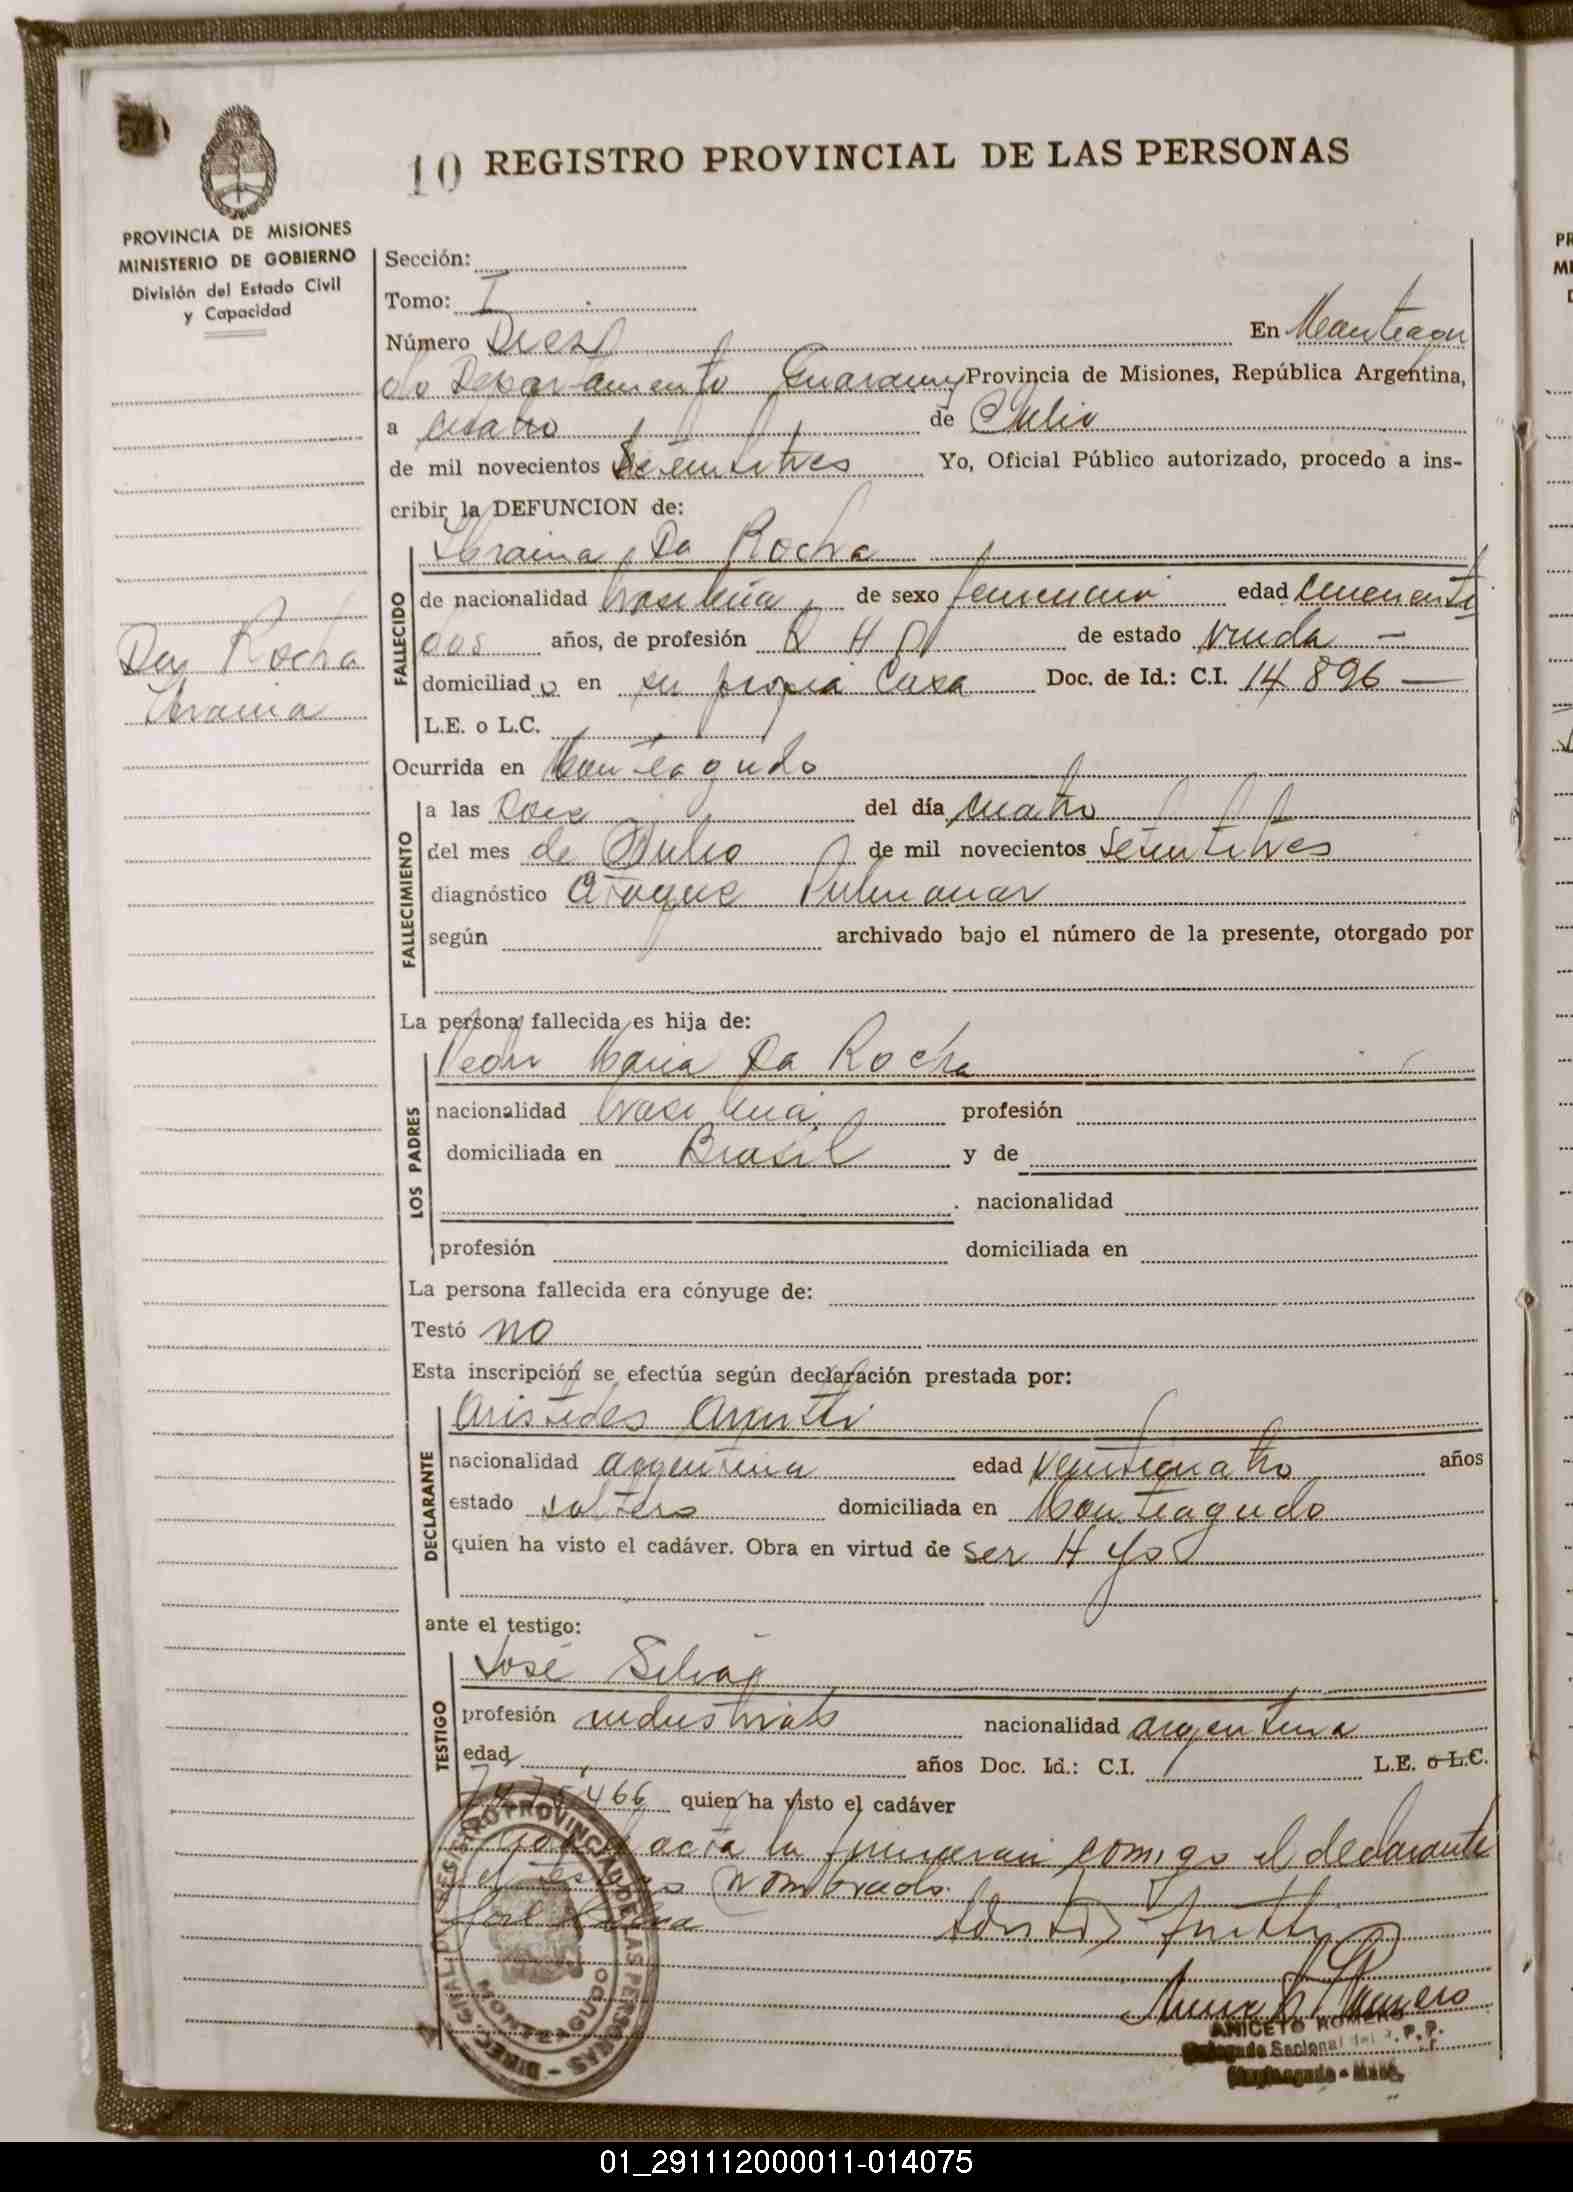 10 REGISTRO PROVINCIAL DE LAS PERSONAS
PROVINCIA DE MISIONES
MINISTERIO DE GOBIERNO
División del Estado Civil
y Capacidad
Sección:
Tomo: I
Número Diez En Monteagu
do Departamento Guarany Provincia de Misiones, República Argentina,
a cuatro de Julio
de mil novecientos Setentitres Yo, Oficial Público autorizado, procedo a ins-
cribir la DEFUNCION de:
Da Rocha
FALLECIDO
de nacionalidad brasileña de sexo femenino edad cincuenti
dos años, de profesión Q H D de estado viuda —
domiciliado en su propia Casa Doc. de Id.: C.I. 14 896 —
L.E. o L.C.
Da Rocha
Ocurrida en Monteagudo
FALLECIMIENTO
a las Doce del día cuatro
del mes de Julio de mil novecientos setentitres
diagnóstico ataque Pulmonar
según archivado bajo el número de la presente, otorgado por
La persona fallecida es hija de:
LOS PADRES
Maria Da Rocha
nacionalidad brasileña profesión
domiciliada en Brasil y de
nacionalidad
profesión domiciliada en
La persona fallecida era cónyuge de:
Testó no
Esta inscripción se efectúa según declaración prestada por:
DECLARANTE
Aristides
nacionalidad argentina edad Veintiquatro años
estado soltero domiciliada en Monteagudo
quien ha visto el cadáver. Obra en virtud de ser Hyo
ante el testigo:
TESTIGO
José Silva
profesión industrial nacionalidad argentina
edad años Doc. Id.: C.I. L.E. o L.C.
466 quien ha visto el cadáver
acta la firmaran comigo el declarante
nombrado.
José Silva
ANICETO ROMERO
Delegado Seccional del R. P. P.
Monteagudo - Mnes.
DIREC. GRAL. DEL REGISTRO PROVINCIAL DE LAS PERSONAS -
MONTEAGUDO
01_291112000011-014075